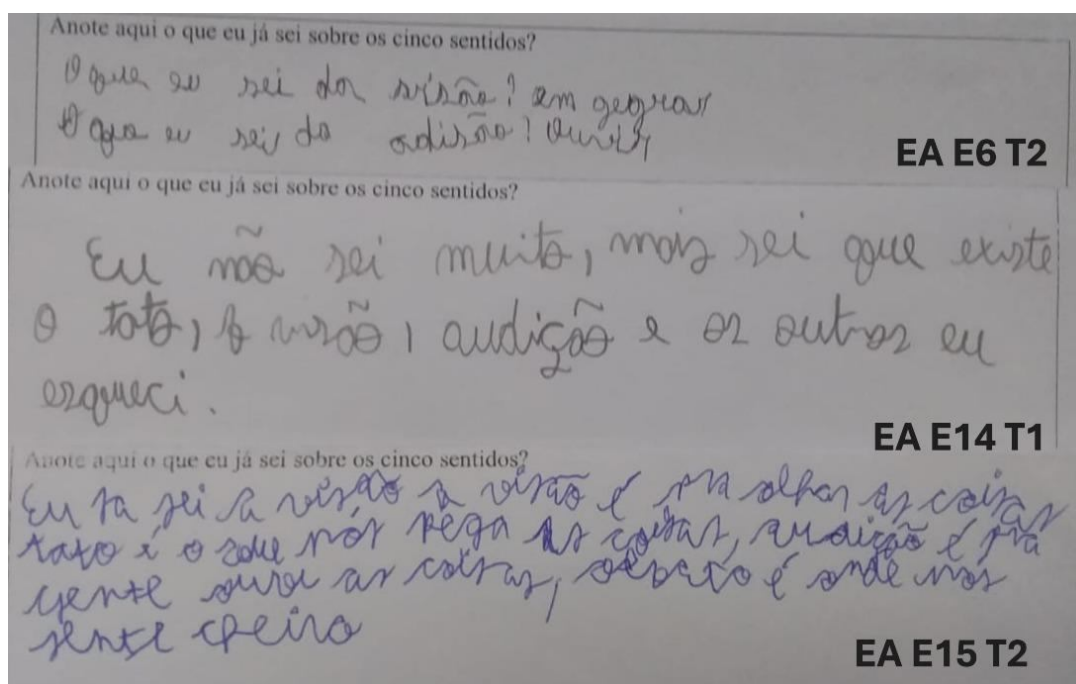 Anote aqui o que eu já sei sobre os cinco sentidos?
O que eu sei da visão? em gegrar
O que eu sei da odisão? Ouvir
EA E6 T2
Anote aqui o que eu já sei sobre os cinco sentidos?
Eu não sei muito, mais sei que existe
o tato, a visão, audição e os outros eu
esqueci.
EA E14 T1
Anote aqui o que eu já sei sobre os cinco sentidos?
Eu ja sei a visão a visão é pra olhar as coisas
tato é o que nós pega as coisas, audição é pra
gente ouvi as coisas, é onde nós
sente cheiro
EA E15 T2